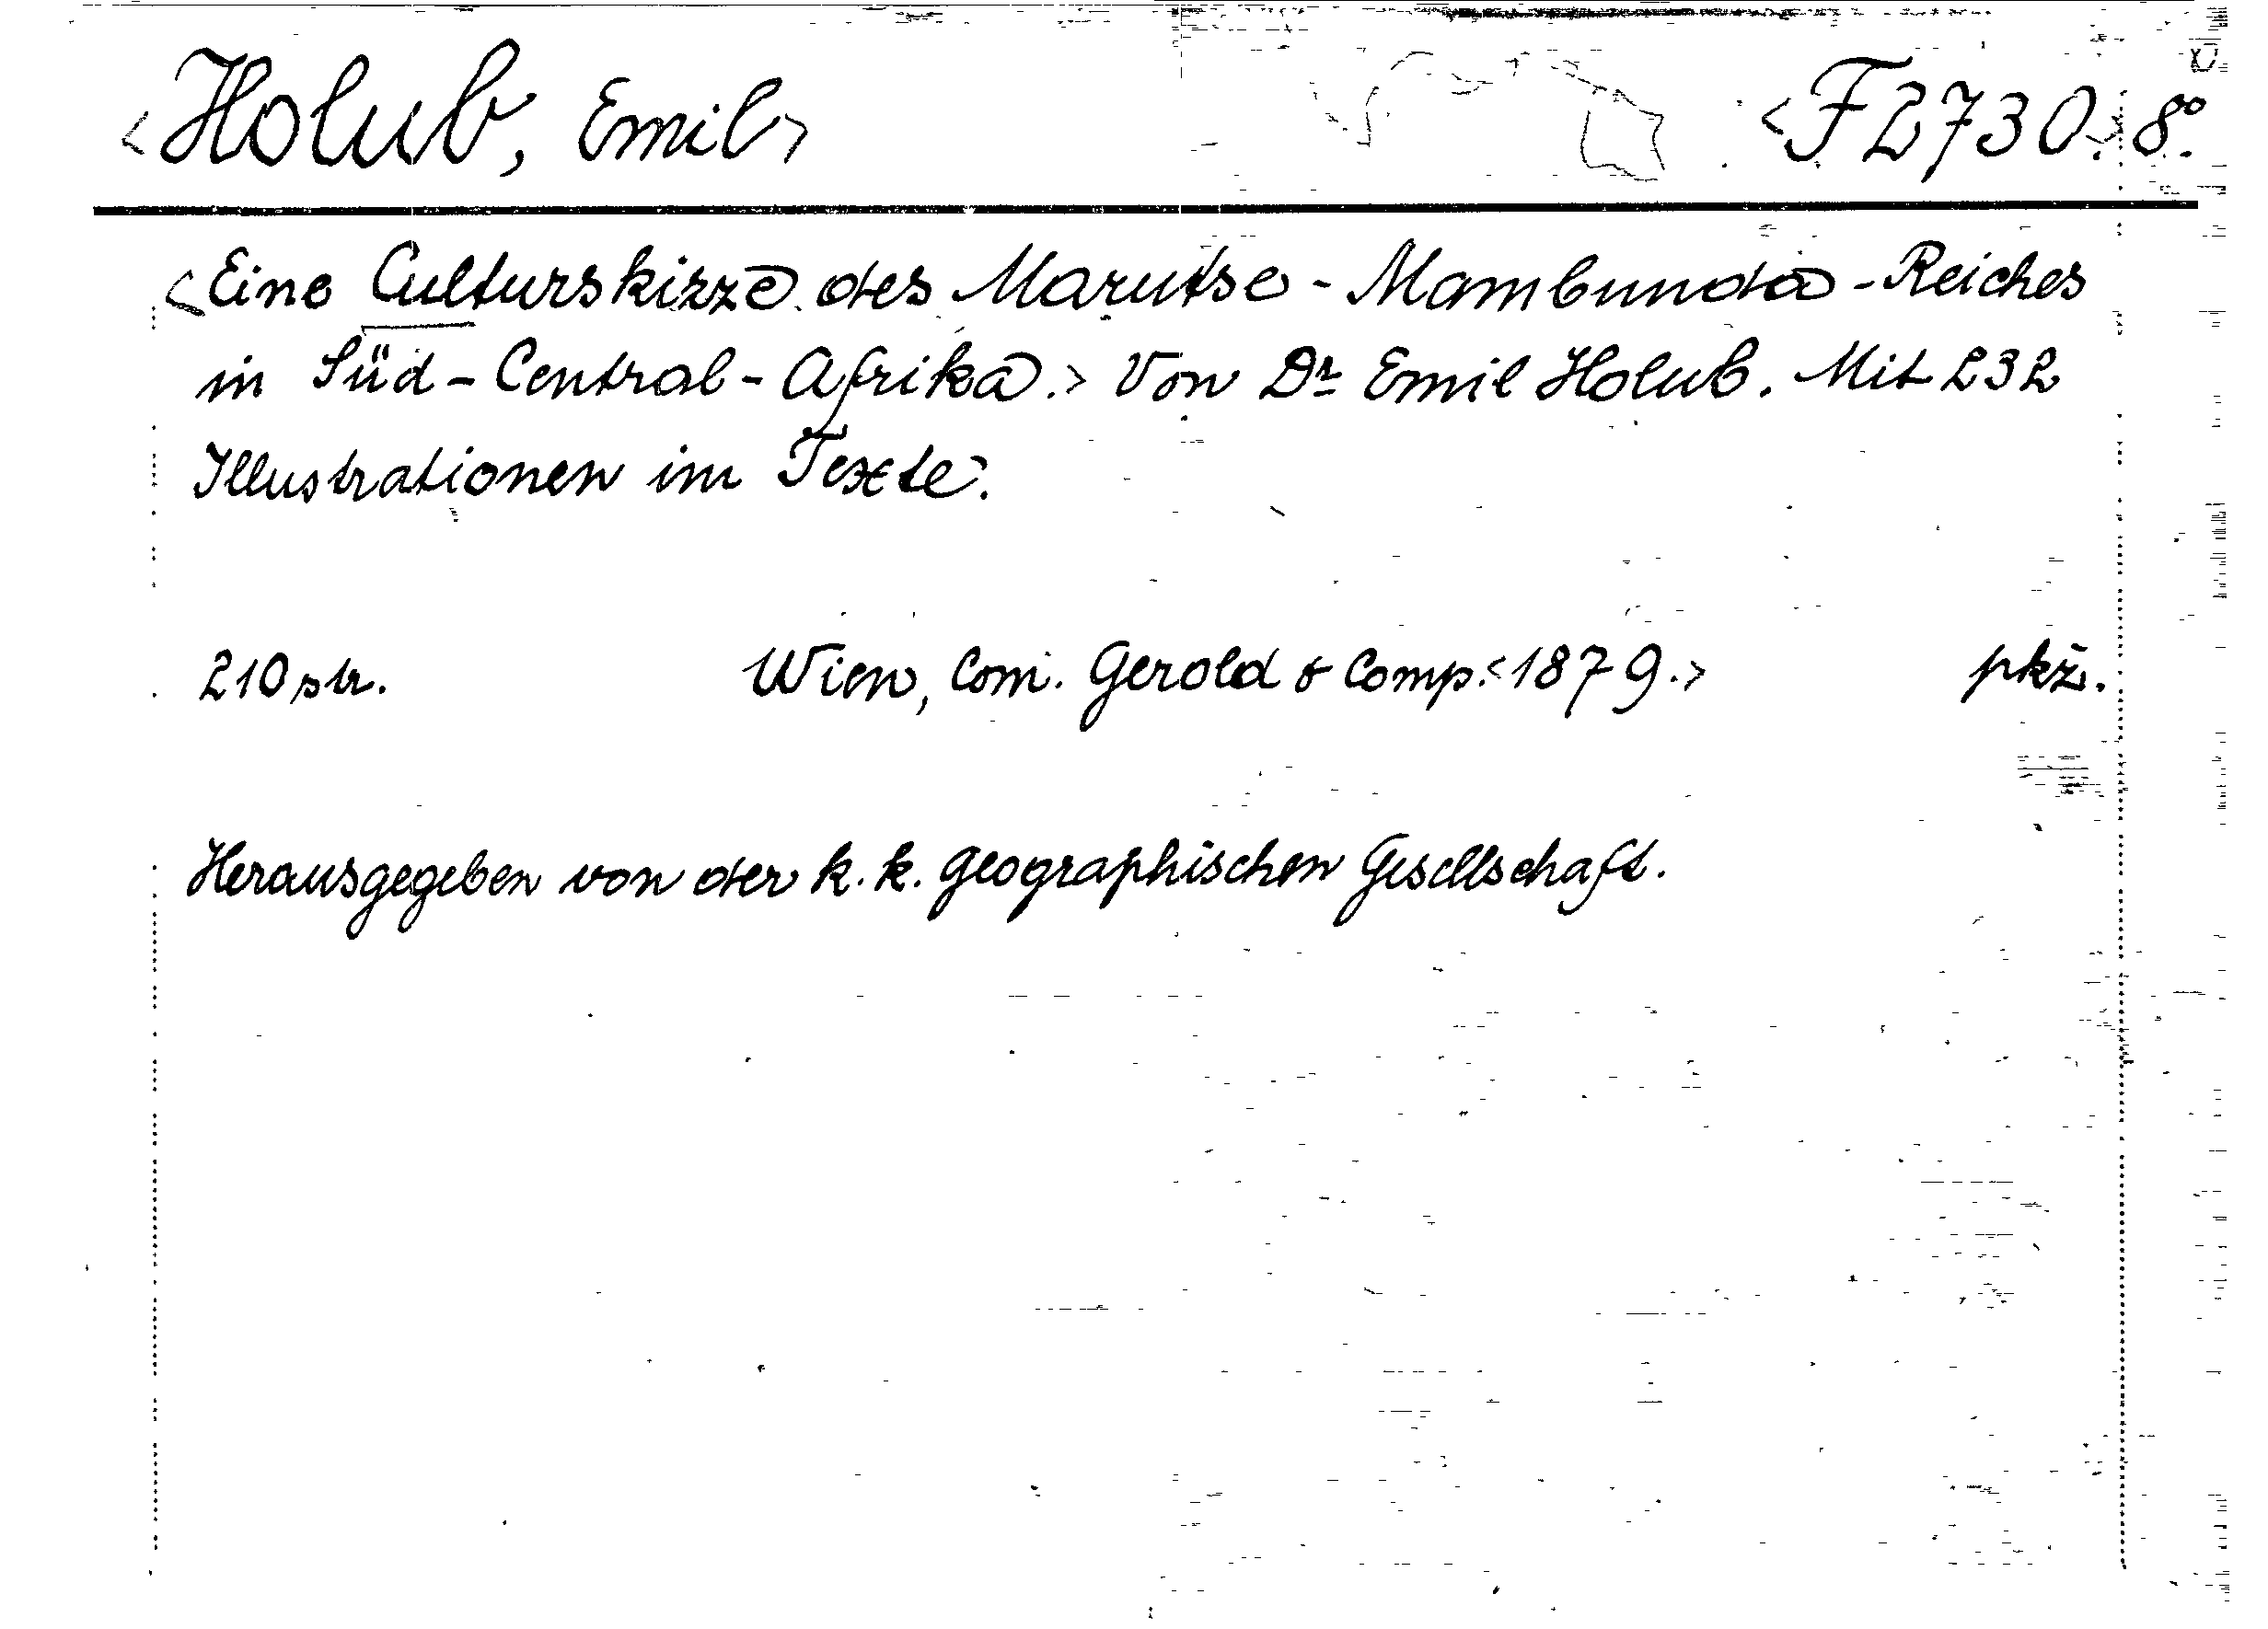 <Holub, Emil> <F 2730.> 8°.
<Eine Culturskizze des Marutse-Mambunda-Reiches
in Süd-Central-Afrika.> Von Dr. Emil Holub. Mit 232
Illustrationen im Texte.
210 str. Wien, Com. Gerold & Comp. <1879.> pkž.
Herausgegeben von der k. k. geographischen Gesellschaft.